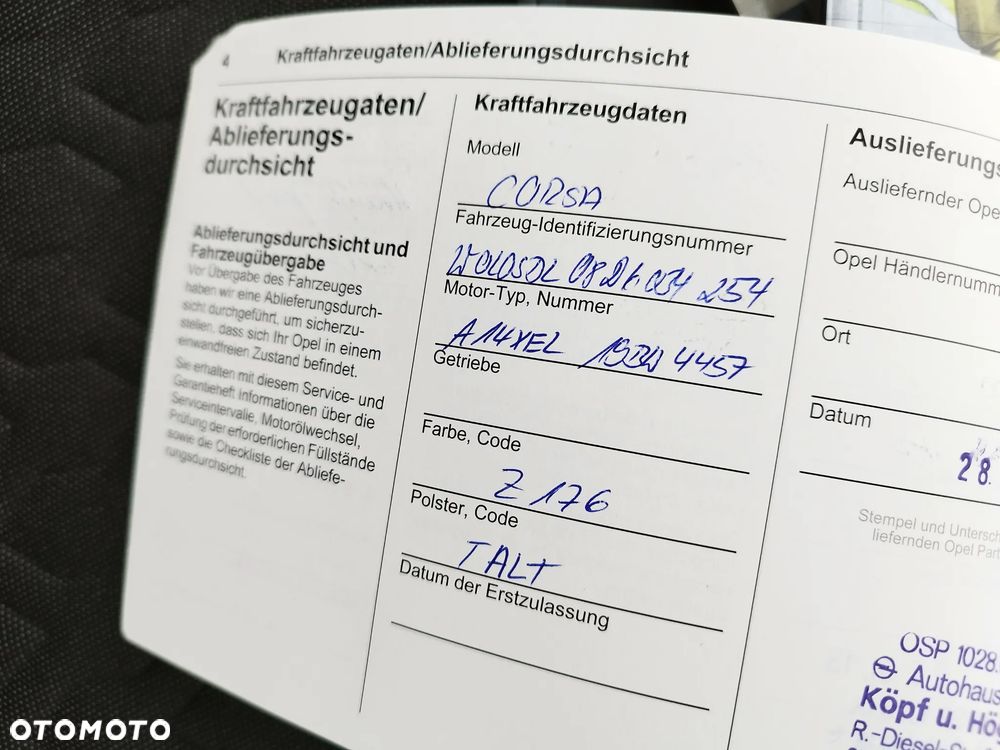 4 Kraftfahrzeugaten/Ablieferungsdurchsicht
Kraftfahrzeugaten/
Ablieferungs-
durchsicht
Ablieferungsdurchsicht und
Fahrzeugübergabe
Vor Übergabe des Fahrzeuges
haben wir eine Ablieferungsdurch-
sicht durchgeführt, um sicherzu-
stellen, dass sich Ihr Opel in einem
einwandfreien Zustand befindet.
Sie erhalten mit diesem Service- und
Garantieheft Informationen über die
Serviceintervalle, Motorölwechsel,
Prüfung der erforderlichen Füllstände
sowie die Checkliste der Abliefe-
rungsdurchsicht.
Kraftfahrzeugdaten
Modell
CORSA
Fahrzeug-Identifizierungsnummer
254
Motor-Typ, Nummer
A14XEL 4457
Getriebe
Farbe, Code
Z 176
Polster, Code
TALT
Datum der Erstzulassung
Auslieferungs
Ausliefernder Ope
Opel Händlernumm
Ort
Datum
28.
Stempel und Untersch
liefernden Opel Part
OSP 1028.
Autohaus
Köpf u. Hö
R.-Diesel-S
OTOMOTO